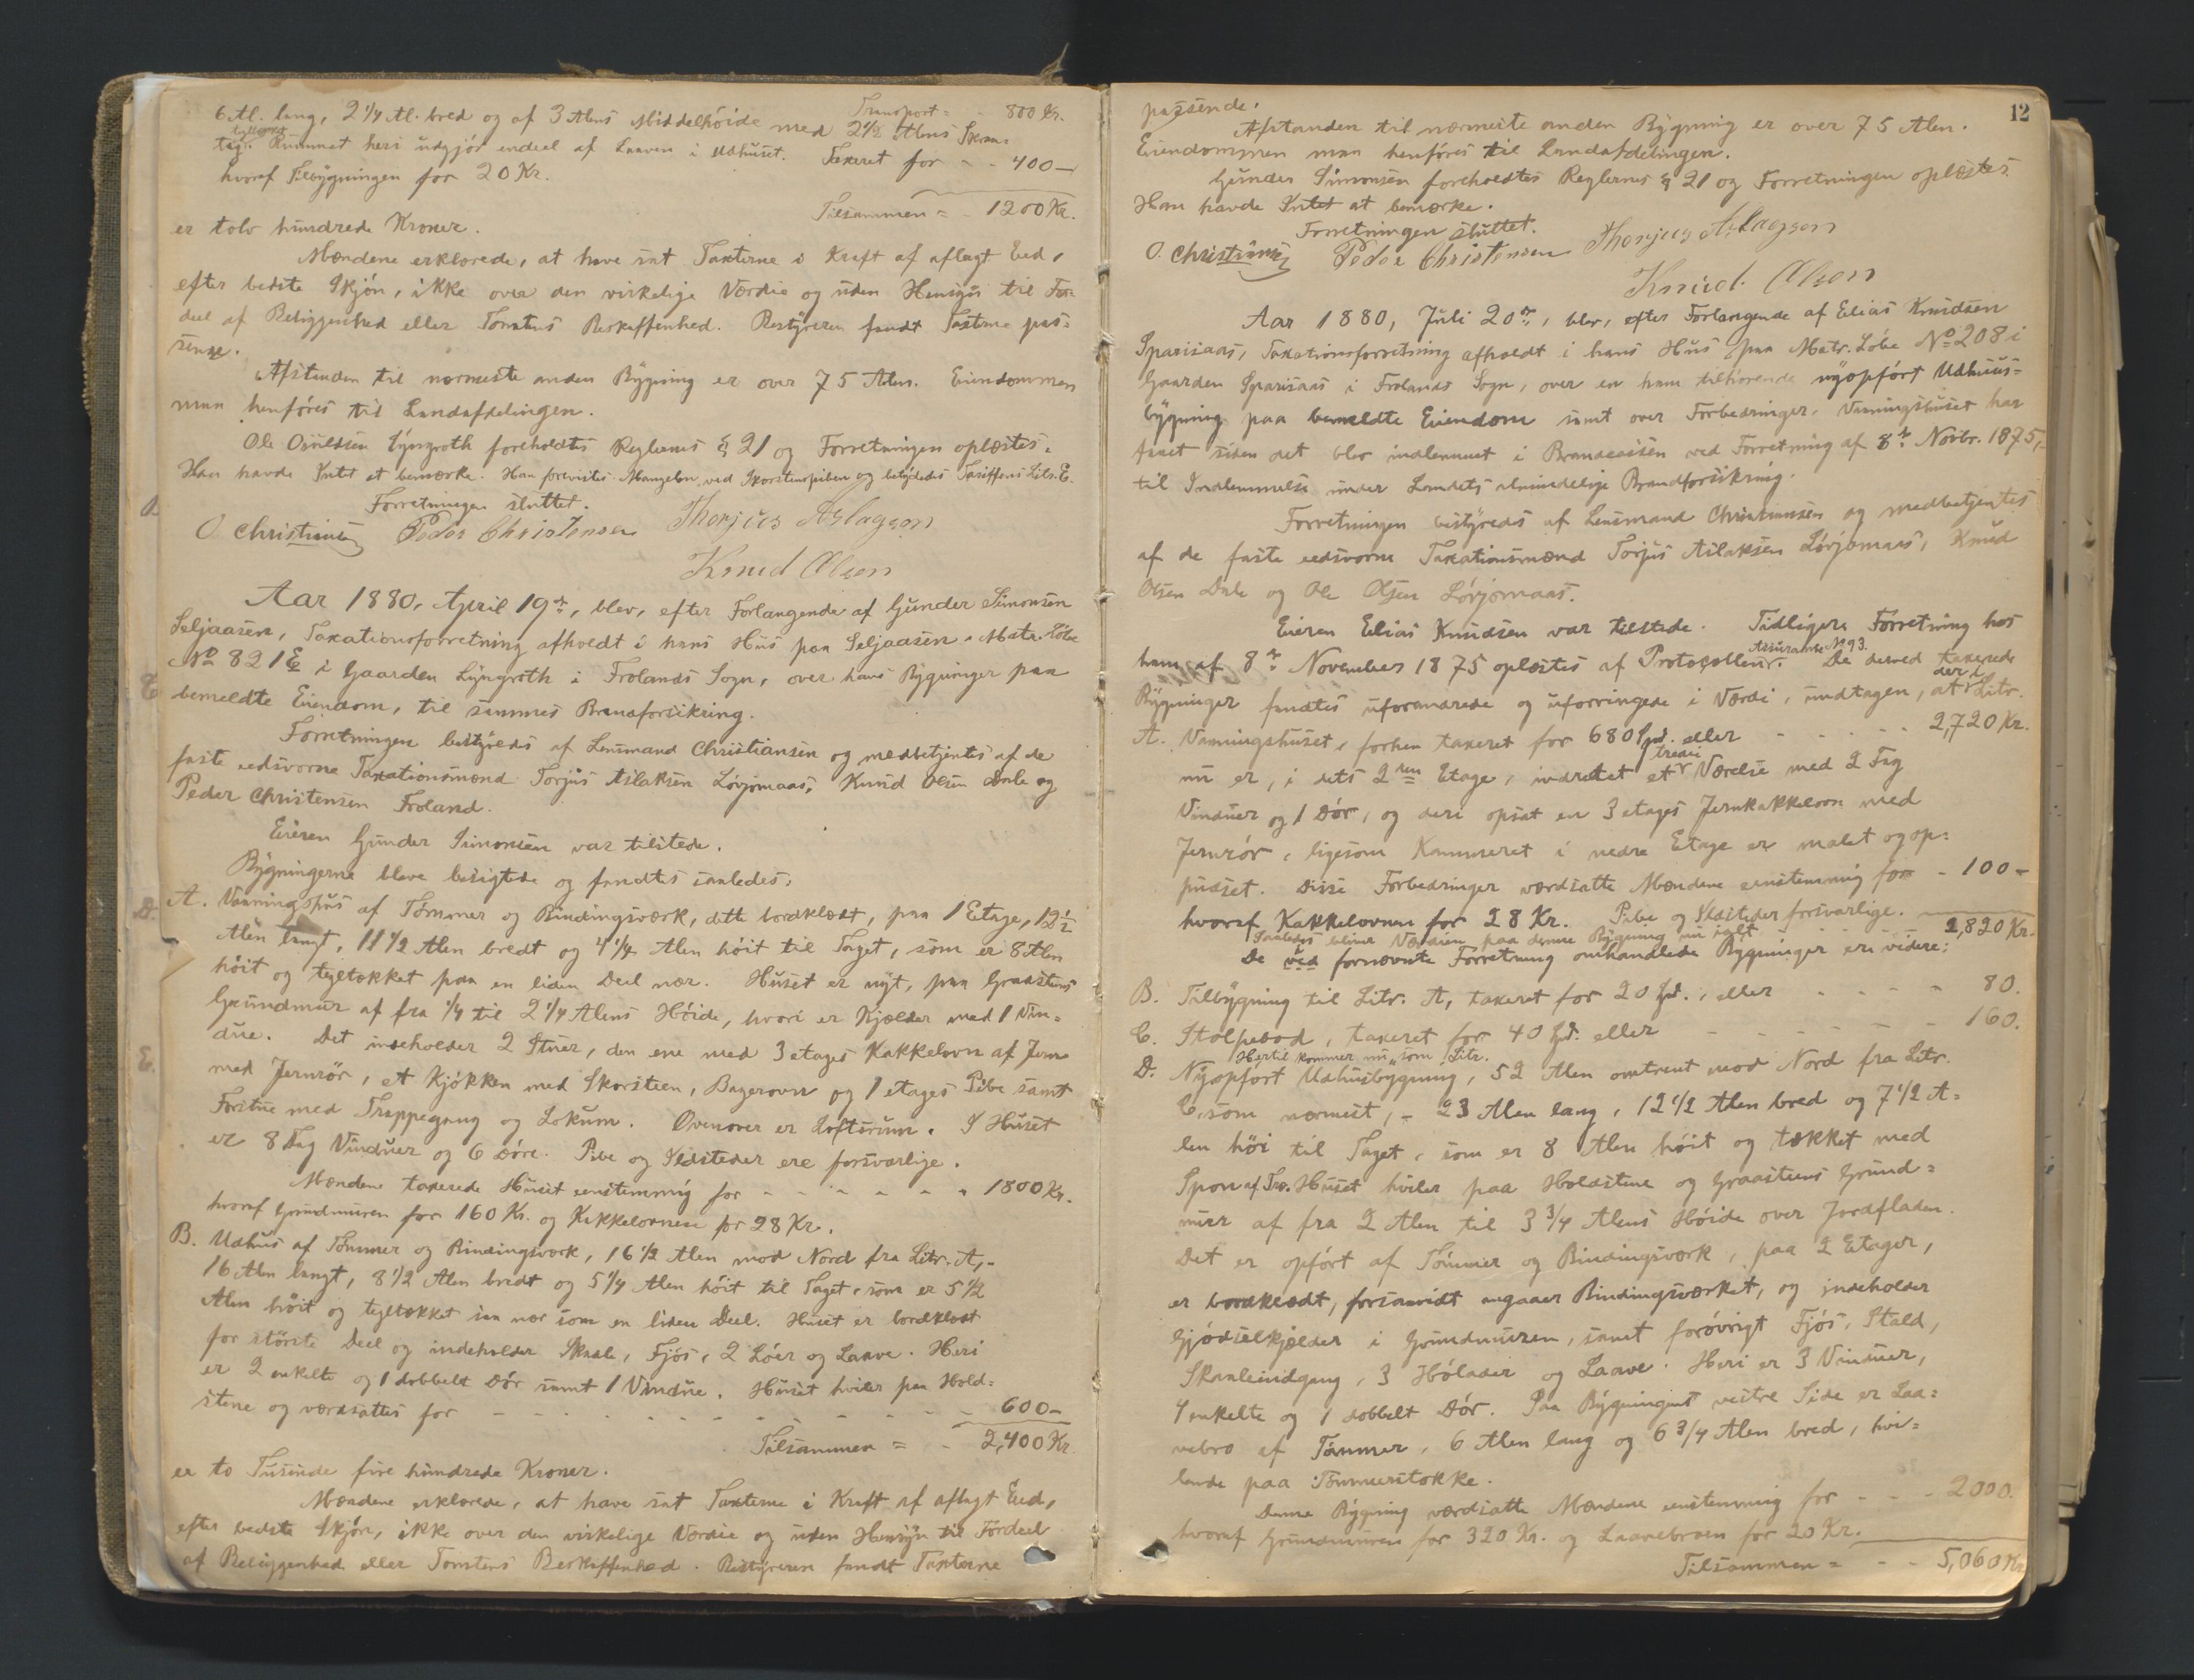 Transport = - 800 Kr.
6 Al. lang, 2 1/4 Al. bred og af 3 Alens Middelhöide med 2 1/2 Alens Skraa-
tag. Rummet heri udgjör endeel af Laaven i Udhuset. Taxeret for - - 400 -
hvoraf Tilbygningen for 20 Kr.
Tilsammen = - 1200 Kr.
er tolv hundrede Kroner.
Mændene erklærede, at have sat Taxterne i Kraft af aflagt Eed,
efter bedste Skjön, ikke over den virkelige Værdie og uden Hensyn til For-
deel af Beliggenhed eller Tomtens Beskaffenhed. Bestyreren fandt Taxterne pas-
sende.
Afstanden til nærmeste anden Bygning er over 75 Alen. Eiendommen
maa henföres til Landafdelingen.
Ole Osuldsen Lyngroth foreholdtes Reglernes § 21 og Forretningen oplæstes.
Han havde Intet at bemærke. Han forevistes Mangelen ved Skorstenspiben og betydedes Tariffens Litr. E.
Forretningen sluttet.
O. Christiansen Peder Christensen Thorjus Aslagson
Knud Olsen
Aar 1880, April 19de, blev, efter Forlangende af Gunder Simonsen
Seljaasen, Taxationsforretning afholdt i hans Hus paa Seljaasen, Matr. Löbe
No 821 E i Gaarden Lyngroth i Frolands Sogn, over hans Bygninger paa
bemeldte Eiendom, til sammes Brandforsikring.
Forretningen bestyredes af Lensmand Christiansen og medbetjentes af de
faste eedsvorne Taxationsmænd Torjus Aslaksen Lövjomaas, Knud Olsen Dale og
Peder Christensen Froland.
Eieren Gunder Simonsen var tilstede.
Bygningerne bleve besigtede og fandtes saaledes:
A. Vaaningshus af Tömmer og Bindingsværk, dette bordklædt, paa 1 Etage, 12 1/2
Alen langt, 11 1/2 Alen bredt og 4 1/4 Alen höit til Taget, som er 8 Alen
höit og tegltækket paa en liden Deel nær. Huset er nyt, paa Graastens
Grundmur af fra 1/4 til 2 1/4 Alens Höide, hvori er Kjælder med 1 Vin-
due. Det indeholder 2 Stuer, den ene med 3 etages Kakkelovn af Jern
med Jernrör, et Kjökken med Skorsteen, Bagerovn og 1 etages Pibe samt
Forstue med Trappegang og Lokum. Ovenover er Loftsrum. I Huset
er 8 Fag Vinduer og 6 Döre. Pibe og Ildsteder ere forsvarlige.
Mændene taxerede Huset eenstemmig for - - - - - - 1800 Kr.
hvoraf Grundmuren for 160 Kr. og Kakkelovnen for 28 Kr.
B. Udhus af Tömmer og Bindingsværk, 16 1/2 Alen mod Nord fra Litr. A, -
16 Alen langt, 8 1/2 Alen bredt og 5 1/4 Alen höit til Taget, som er 5 1/2
Alen höit og tegltækket saa nær som en liden Deel. Huset er bordklædt
for störste Deel og indeholder Skaale, Fjös, 2 Löer og Laave. Heri
er 2 enkelte og 1 dobbelt Dör samt 1 Vindue. Huset hviler paa Hold-
stene og værdsattes for - - - - - - - - - - 600 -
Tilsammen = - 2,400 Kr.
er to Tusinde fire hundrede Kroner.
Mændene erklærede, at have sat Taxterne i Kraft af aflagt Eed,
efter bedste Skjön, ikke over den virkelige Værdie og uden Hensyn til Fordeel
af Beliggenhed eller Tomtens Beskaffenhed. Bestyreren fandt Taxterne
12
passende.
Afstanden til nærmeste anden Bygning er over 75 Alen.
Eiendommen maa henföres til Landafdelingen.
Gunder Simonsen foreholdtes Reglernes § 21 og Forretningen oplæstes.
Han havde Intet at bemærke.
Forretningen sluttet.
O. Christiansen Peder Christensen Thorjus Aslagson
Knud Olsen
Aar 1880, Juli 20de, blev, efter Forlangende af Elias Knudsen
Sparsaas, Taxationsforretning afholdt i hans Hus paa Matr. Löbe No 208 i
Gaarden Sparsaas i Frolands Sogn, over en ham tilhörende nyopfört Udhuus-
bygning paa bemeldte Eiendom samt over Forbedringer, Vaaningshuset har
faaet siden det blev indlemmet i Brandcassen ved Forretning af 8de Novbr. 1875, -
til Indlemmelse under Landets almindelige Brandforsikring.
Forretningen bestyredes af Lensmand Christiansen og medbetjentes
af de faste eedsvorne Taxationsmænd Torjus Aslaksen Lövjomaas, Knud
Olsen Dale og Ole Olsen Lövjomaas.
Eieren Elias Knudsen var tilstede. Tidligere Forretning hos
ham af 8de November 1875 oplæstes af Protocollen. Assurance No 93. De derved taxerede
Bygninger fandtes uforandrede og uforringede i Værdi, undtagen, at der i Litr.
A. Vaaningshuset, forhen taxeret for 680 Spd. eller - - - - - 2,720 Kr.
nu er, i dets 2den Etage, indredet et tredie Værelse med 2 Fag
Vinduer og 1 Dör, og deri opsat en 3 etages Jernkakkelovn med
Jernrör, ligesom Kammeret i nedre Etage er malet og op-
pudset. Disse Forbedringer værdsatte Mændene eenstemmig for - 100 -
hvoraf Kakkelovnen for 28 Kr. Pibe og Ildsteder forsvarlige.
Saaledes bliver Værdien paa denne Bygning nu ialt - - - - 2,820 Kr.
De ved fornævnte Forretning omhandlede Bygninger ere videre:
B. Tilbygning til Litr. A, taxeret for 20 Spd., eller - - - - 80.
C. Stolpebod, taxeret for 40 Spd. eller - - - - - - 160.
Hertil kommer nu, som Litr.
D. Nyopfört Udhusbygning, 52 Alen omtrent mod Nord fra Litr.
C, som nærmest, - 23 Alen lang, 12 1/2 Alen bred og 7 1/2 A-
len höi til Taget, som er 8 Alen höit og tækket med
Spon af Træ. Huset hviler paa Holdstene og Graasteens Grund-
mur af fra 2 Alen til 3 3/4 Alens Höide over Jordfladen.
Det er opfört af Tömmer og Bindingsværk, paa 2 Etager,
er bordklædt, forsaavidt angaaer Bindingsværket, og indeholder
Gjödselkjelder i Grundmuren, samt forövrigt Fjös, Stald,
Skaaleindgang, 3 Hölader og Laave. Heri er 3 Vinduer,
4 enkelte og 1 dobbelt Dör. Paa Bygningens vestre Side er Laa-
vebro af Tömmer, 6 Alen lang og 6 3/4 Alen bred, hvi-
lende paa Tömmerstokke.
Denne Bygning værdsatte Mændene eenstemmig for - - - 2000.
hvoraf Grundmuren for 320 Kr. og Laavebroen for 20 Kr.
Tilsammen = - - 5,060 Kr.